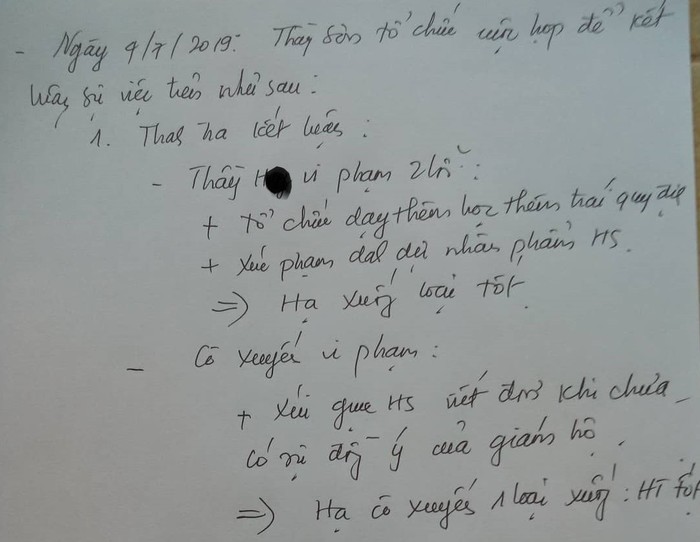 - Ngày 9/7/2019: Thầy Sơn tổ chức cuộc họp để kết
luận sự việc trên như sau:
1. Thay ra kết luận:
- Thầy H vi phạm 2 lỗi:
+ tổ chức dạy thêm học thêm trái quy định
+ xúc phạm danh dự nhân phẩm HS.
=> Hạ xuống loại tốt.
- Cô Xuyến vi phạm:
+ xúi giục HS viết đơn khi chưa
có sự đồng ý của giám hộ.
=> Hạ cô Xuyến 1 loại xuống: HT tốt